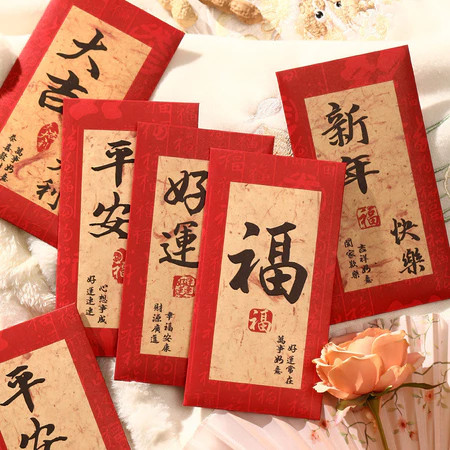 大吉
大利
萬事如意
恭喜發財
平安
福
心想事成
好運連連
好運
幸福安康
財源廣進
福
福
好運常在
萬事如意
新年
快樂
福
吉祥如意
闔家歡樂
平安
福